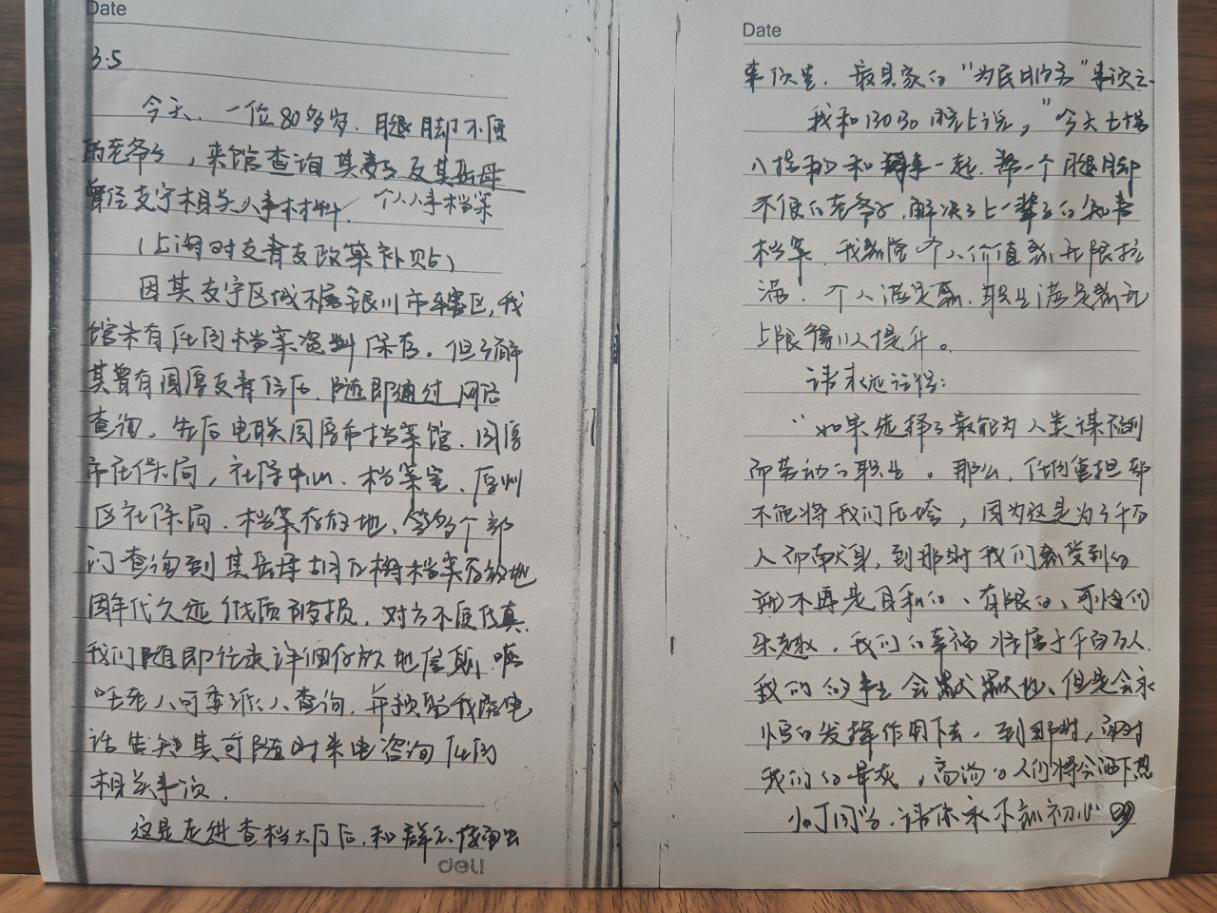 Date
3.5
今天，一位80多岁，腿脚不便
的老爷子，来馆查询其妻子及其岳母
曾经支宁相关人事材料，个人人事档案
（上海对支青支政策补贴）
因其支宁区域不属银川市辖区，我
馆未有任何档案资料保存。但了解
其曾有固原支青经历，随即通过网络
查询。先后电联固原市档案馆、固原
市社保局，社保中心、档案室、原州
区社保局、档案存放地，等多个部
门查询到其岳母档案存放地
因年代久远纸质破损，对方不便传真，
我们随即记录详细存放地信息，嘱
咐老人可委派人查询，并预留我馆电
话告知其可随时来电咨询任何
相关事项。
这是走进查档大厅后，和群众接触
deli
Date
最具象的“为民服务”事项之一
我和 晚上说，“今天七搭
八搭的和 一起，帮一个腿脚
不便的老爷子，解决了上一辈子的知青
档案，我就觉个人价值就无限拉
满，个人满足感、职业满足感无
上限得以提升。
请永远记得：
“如果选择了最能为人类谋福利
而劳动的职业。那么，任何重担都
不能将我们压垮，因为这是为了千万
人而献身，到那时我们感受到的
就不再是自私的、有限的、可怜的
乐趣，我们的幸福将属于千百万人，
我们的事业会默默地、但是会永
恒的发挥作用下去，到那时，面对
我们的骨灰，高尚的人们将会洒下热
小丁同学，请你永不忘初心